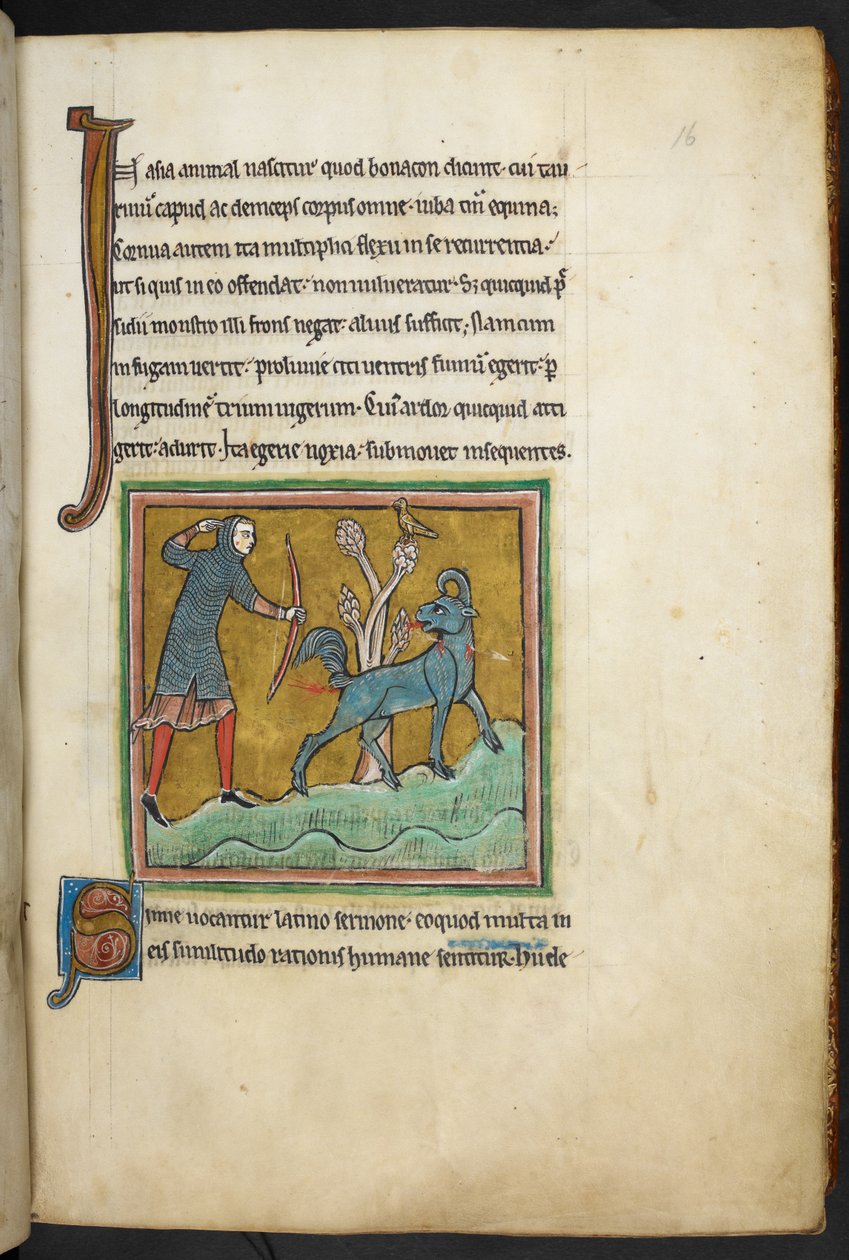 16
IN asia animal nascitur quod bonacon dicunt· cui tau
rinũ capud ac deinceps corpus omne· iuba tm̃ equina;
Cornua autem ita multiplici flexu in se recurrentia·
ut si quis in eo offendat· non uulneratur· Sꝫ quicquid p̃
sidii monstro illi frons negat· aluus sufficit; Nam cum
in fugam uertit· proluuie citi uentris fumũ egerit· ꝑ
longitudinẽ trium iugerum· Cuiꝰ ardor quicquid atti
gerit· adurit· Ita egerie noxia· submouet insequentes.
Simie uocantur latino sermone· eo quod multa in
eis similitudo rationis humane sentitur· Hu de